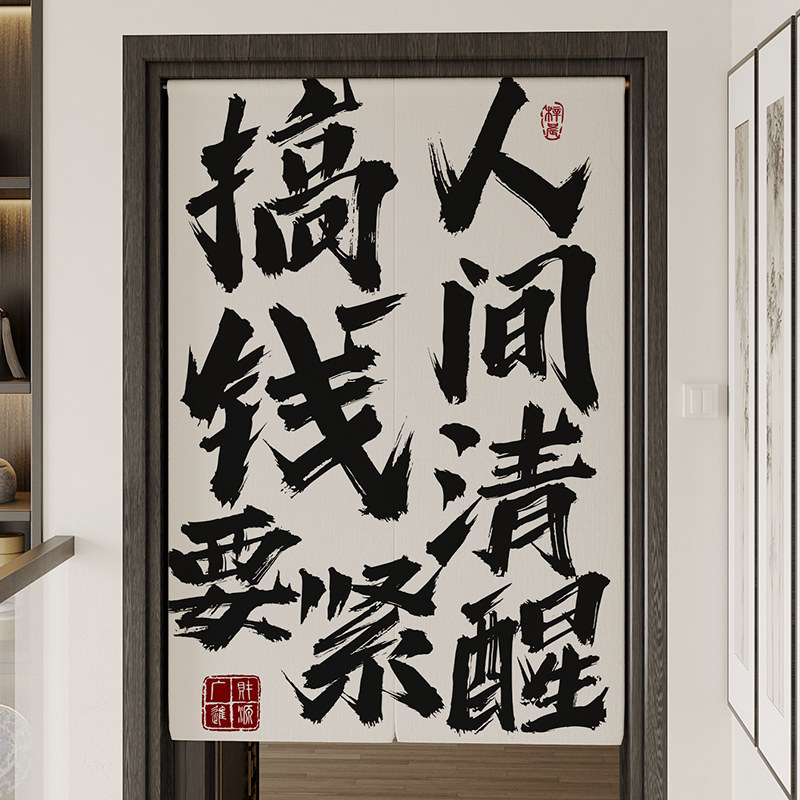 人间清醒
搞钱要紧
梓晨
财源
广进